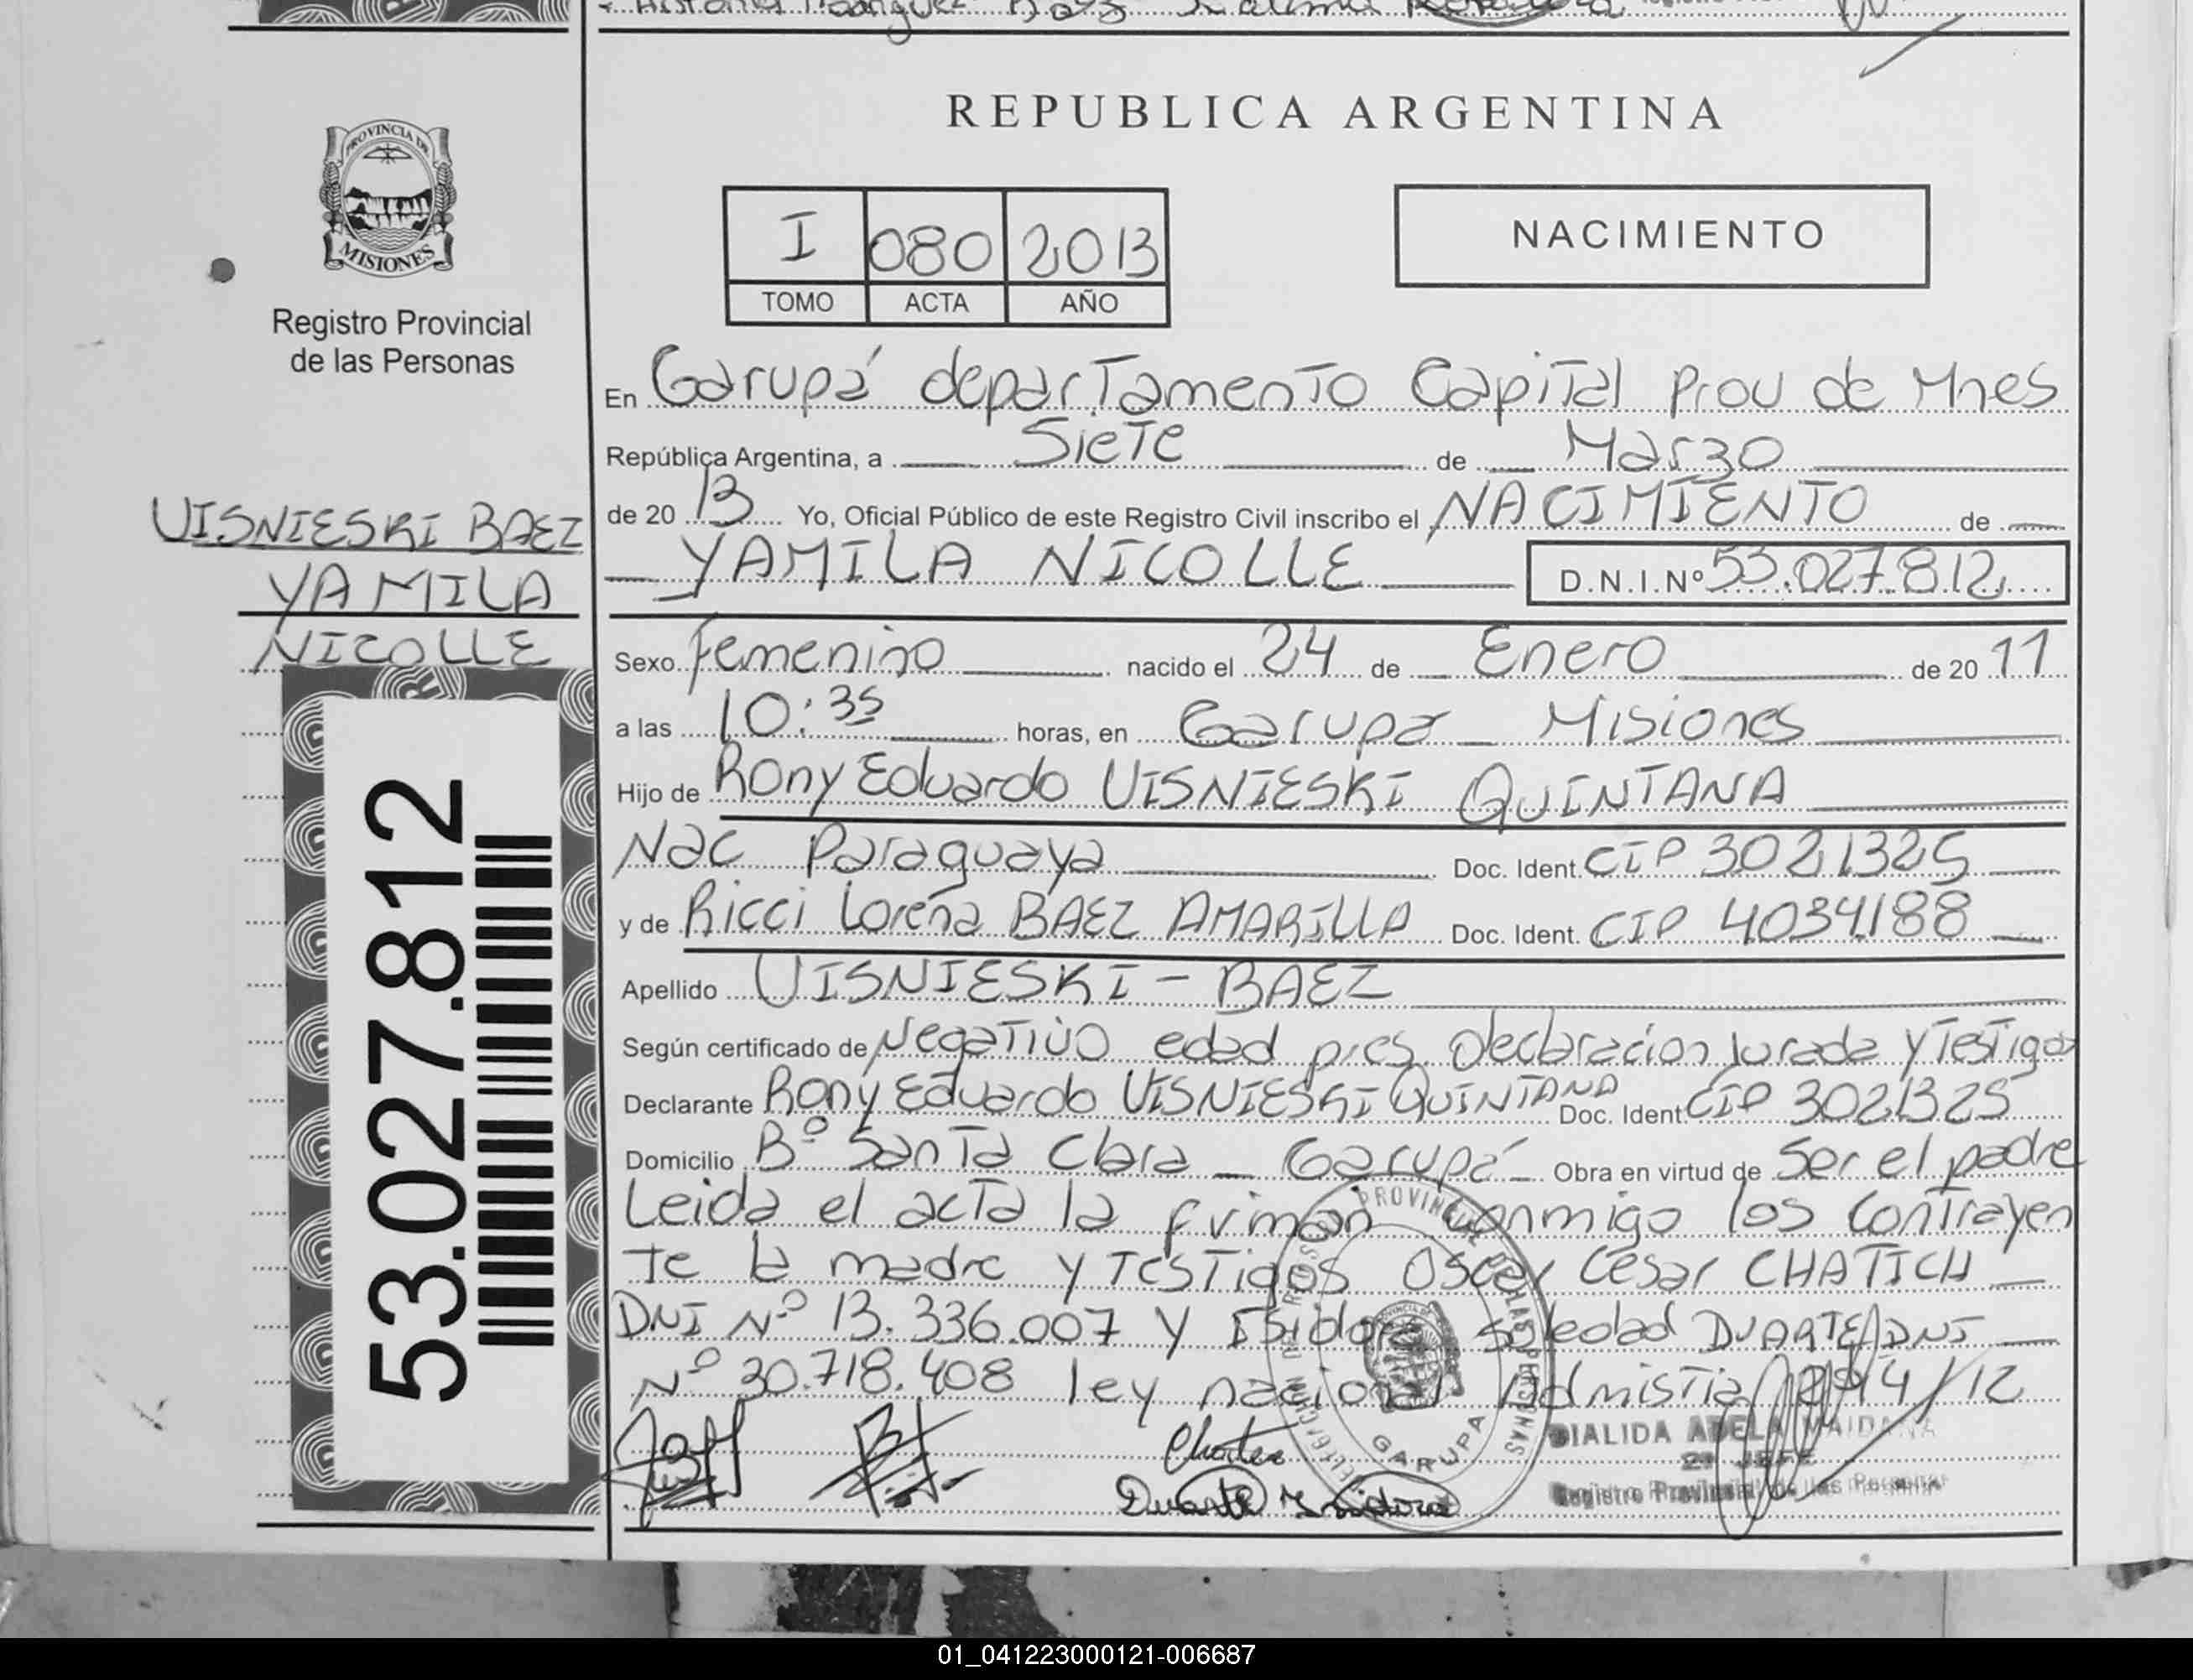 REPUBLICA ARGENTINA
PROVINCIA DE
MISIONES
Registro Provincial
de las Personas
I 080 2013
TOMO ACTA AÑO
NACIMIENTO
VISNIESKI BAEZ
YAMILA
NICOLLE
53.027.812
En Garupá departamento Capital Prov de Mnes
República Argentina, a Siete de Marzo
de 2013 Yo, Oficial Público de este Registro Civil inscribo el NACIMIENTO de
YAMILA NICOLLE D.N.I.Nº 53.027.812
Sexo Femenino nacido el 24 de Enero de 2011
a las 10:35 horas, en Garupa Misiones
Hijo de Rony Eduardo VISNIESKI QUINTANA
Nac Paraguaya Doc. Ident. CIP 3021325
y de Ricci Lorena BAEZ AMARILLA Doc. Ident. CIP 4034188
Apellido VISNIESKI - BAEZ
Según certificado de Negativo edad pres. Declaracion Jurada y Testigos
Declarante Rony Eduardo VISNIESKI QUINTANA Doc. Ident. CIP 3021325
Domicilio Bº Santa Clara - Garupá - Obra en virtud de Ser el padre
Leida el acta la firman conmigo los Contrayen
te la madre y Testigos Oscar Cesar CHATICH
DNI Nº 13.336.007 y Isidora Soledad DUARTE DNI
Nº 30.718.408 ley nacional Admistia 294/12
Duarte Isidora
GARUPA
DIALIDA ADELA MAIDANA
2º JEFE
Registro Provincial de las Personas
01_041223000121-006687